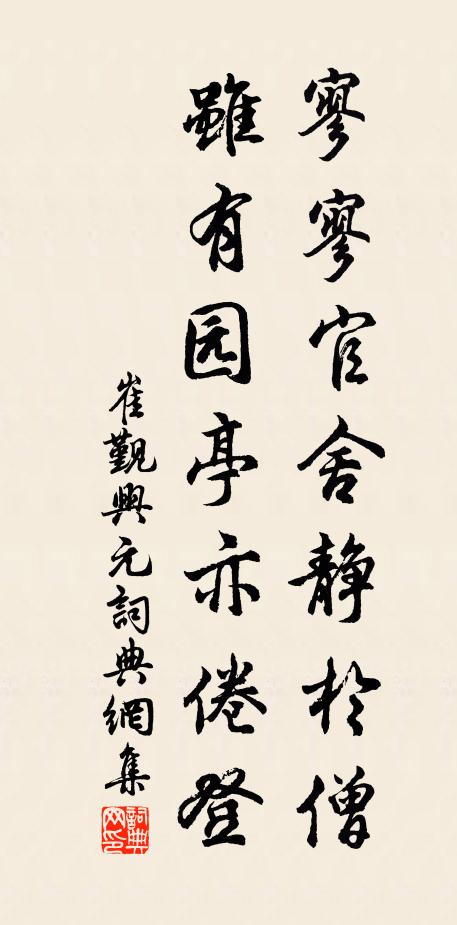 寥寥官舍静於僧
雖有园亭亦倦登
崔觀興元詞典網集
詞典
网印